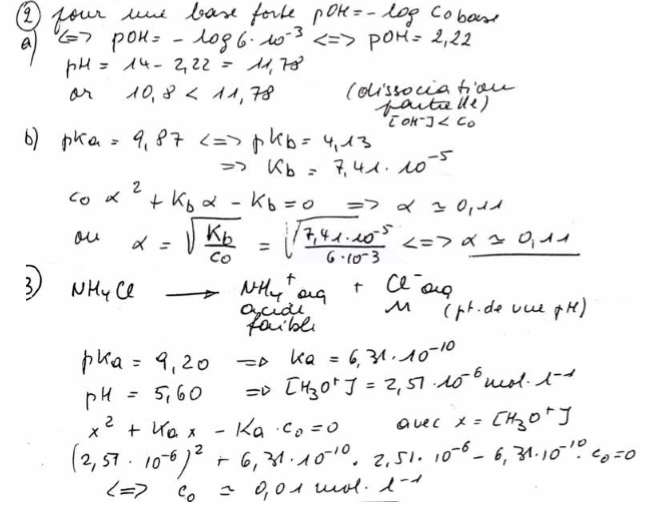 ② pour une base forte pOH = - log Co base
a) <=> pOH = - log 6·10⁻³ <=> pOH = 2,22
pH = 14 - 2,22 = 11,78
or 10,8 < 11,78 (dissociation partielle) [OH⁻] < Co
b) pKa = 9,87 <=> pKb = 4,13
=> Kb = 7,41·10⁻⁵
co α² + Kb α - Kb = 0 => α ≃ 0,11
ou α = √(Kb/co) = √(7,41·10⁻⁵/6·10⁻³) <=> α ≃ 0,11
3) NH₄Cl ⟶ NH₄⁺aq + Cl⁻aq
acide faible N (pt. de vue pH)
pKa = 9,20 => Ka = 6,31·10⁻¹⁰
pH = 5,60 => [H₃O⁺] = 2,51·10⁻⁶ mol·l⁻¹
x² + Ka x - Ka·co = 0 avec x = [H₃O⁺]
(2,51·10⁻⁶)² + 6,31·10⁻¹⁰·2,51·10⁻⁶ - 6,31·10⁻¹⁰·co = 0
<=> co ≃ 0,01 mol·l⁻¹